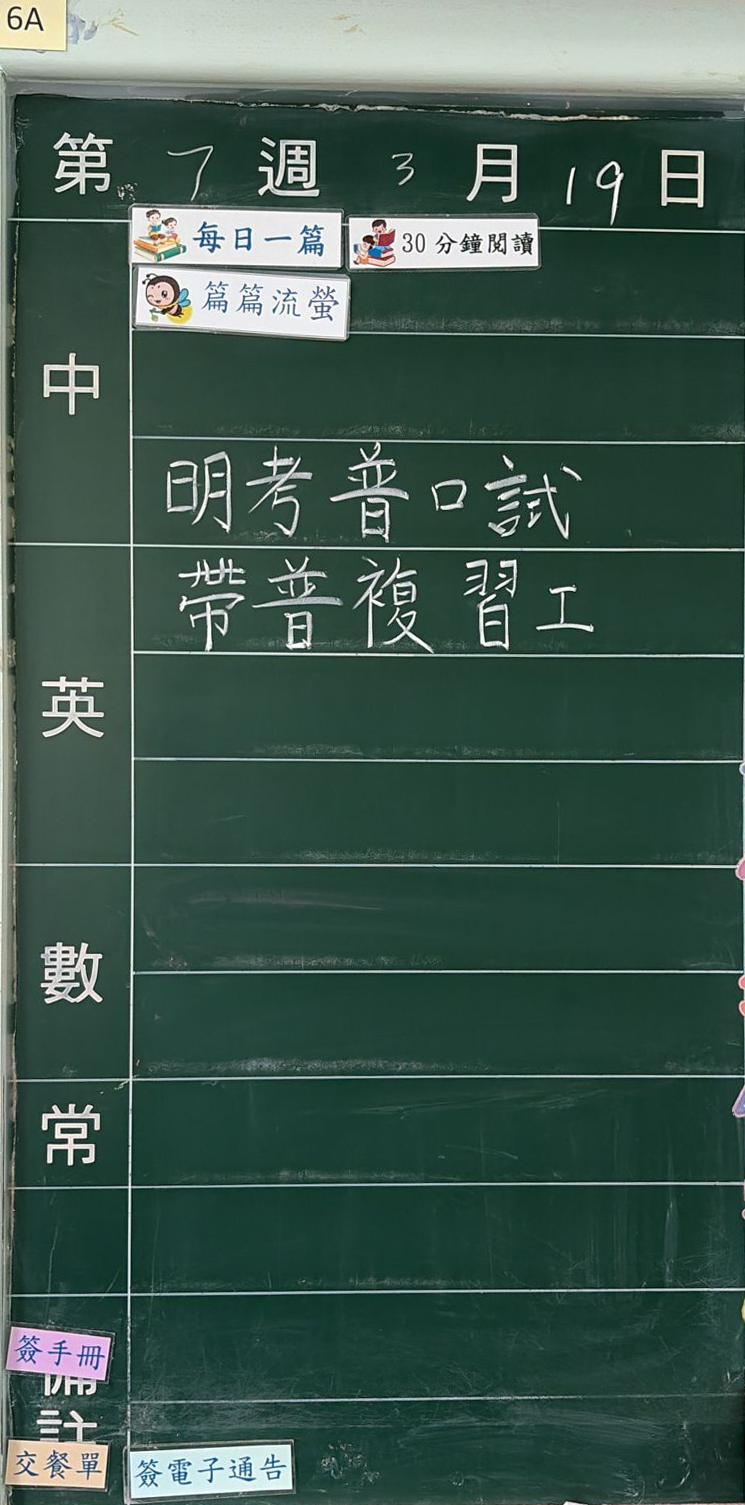 6A
第 7 週 3 月 19 日
每日一篇 30 分鐘閱讀
篇篇流螢
中
明考普口試
英
帶普複習工
數
常
簽手冊
備註
交餐單 簽電子通告